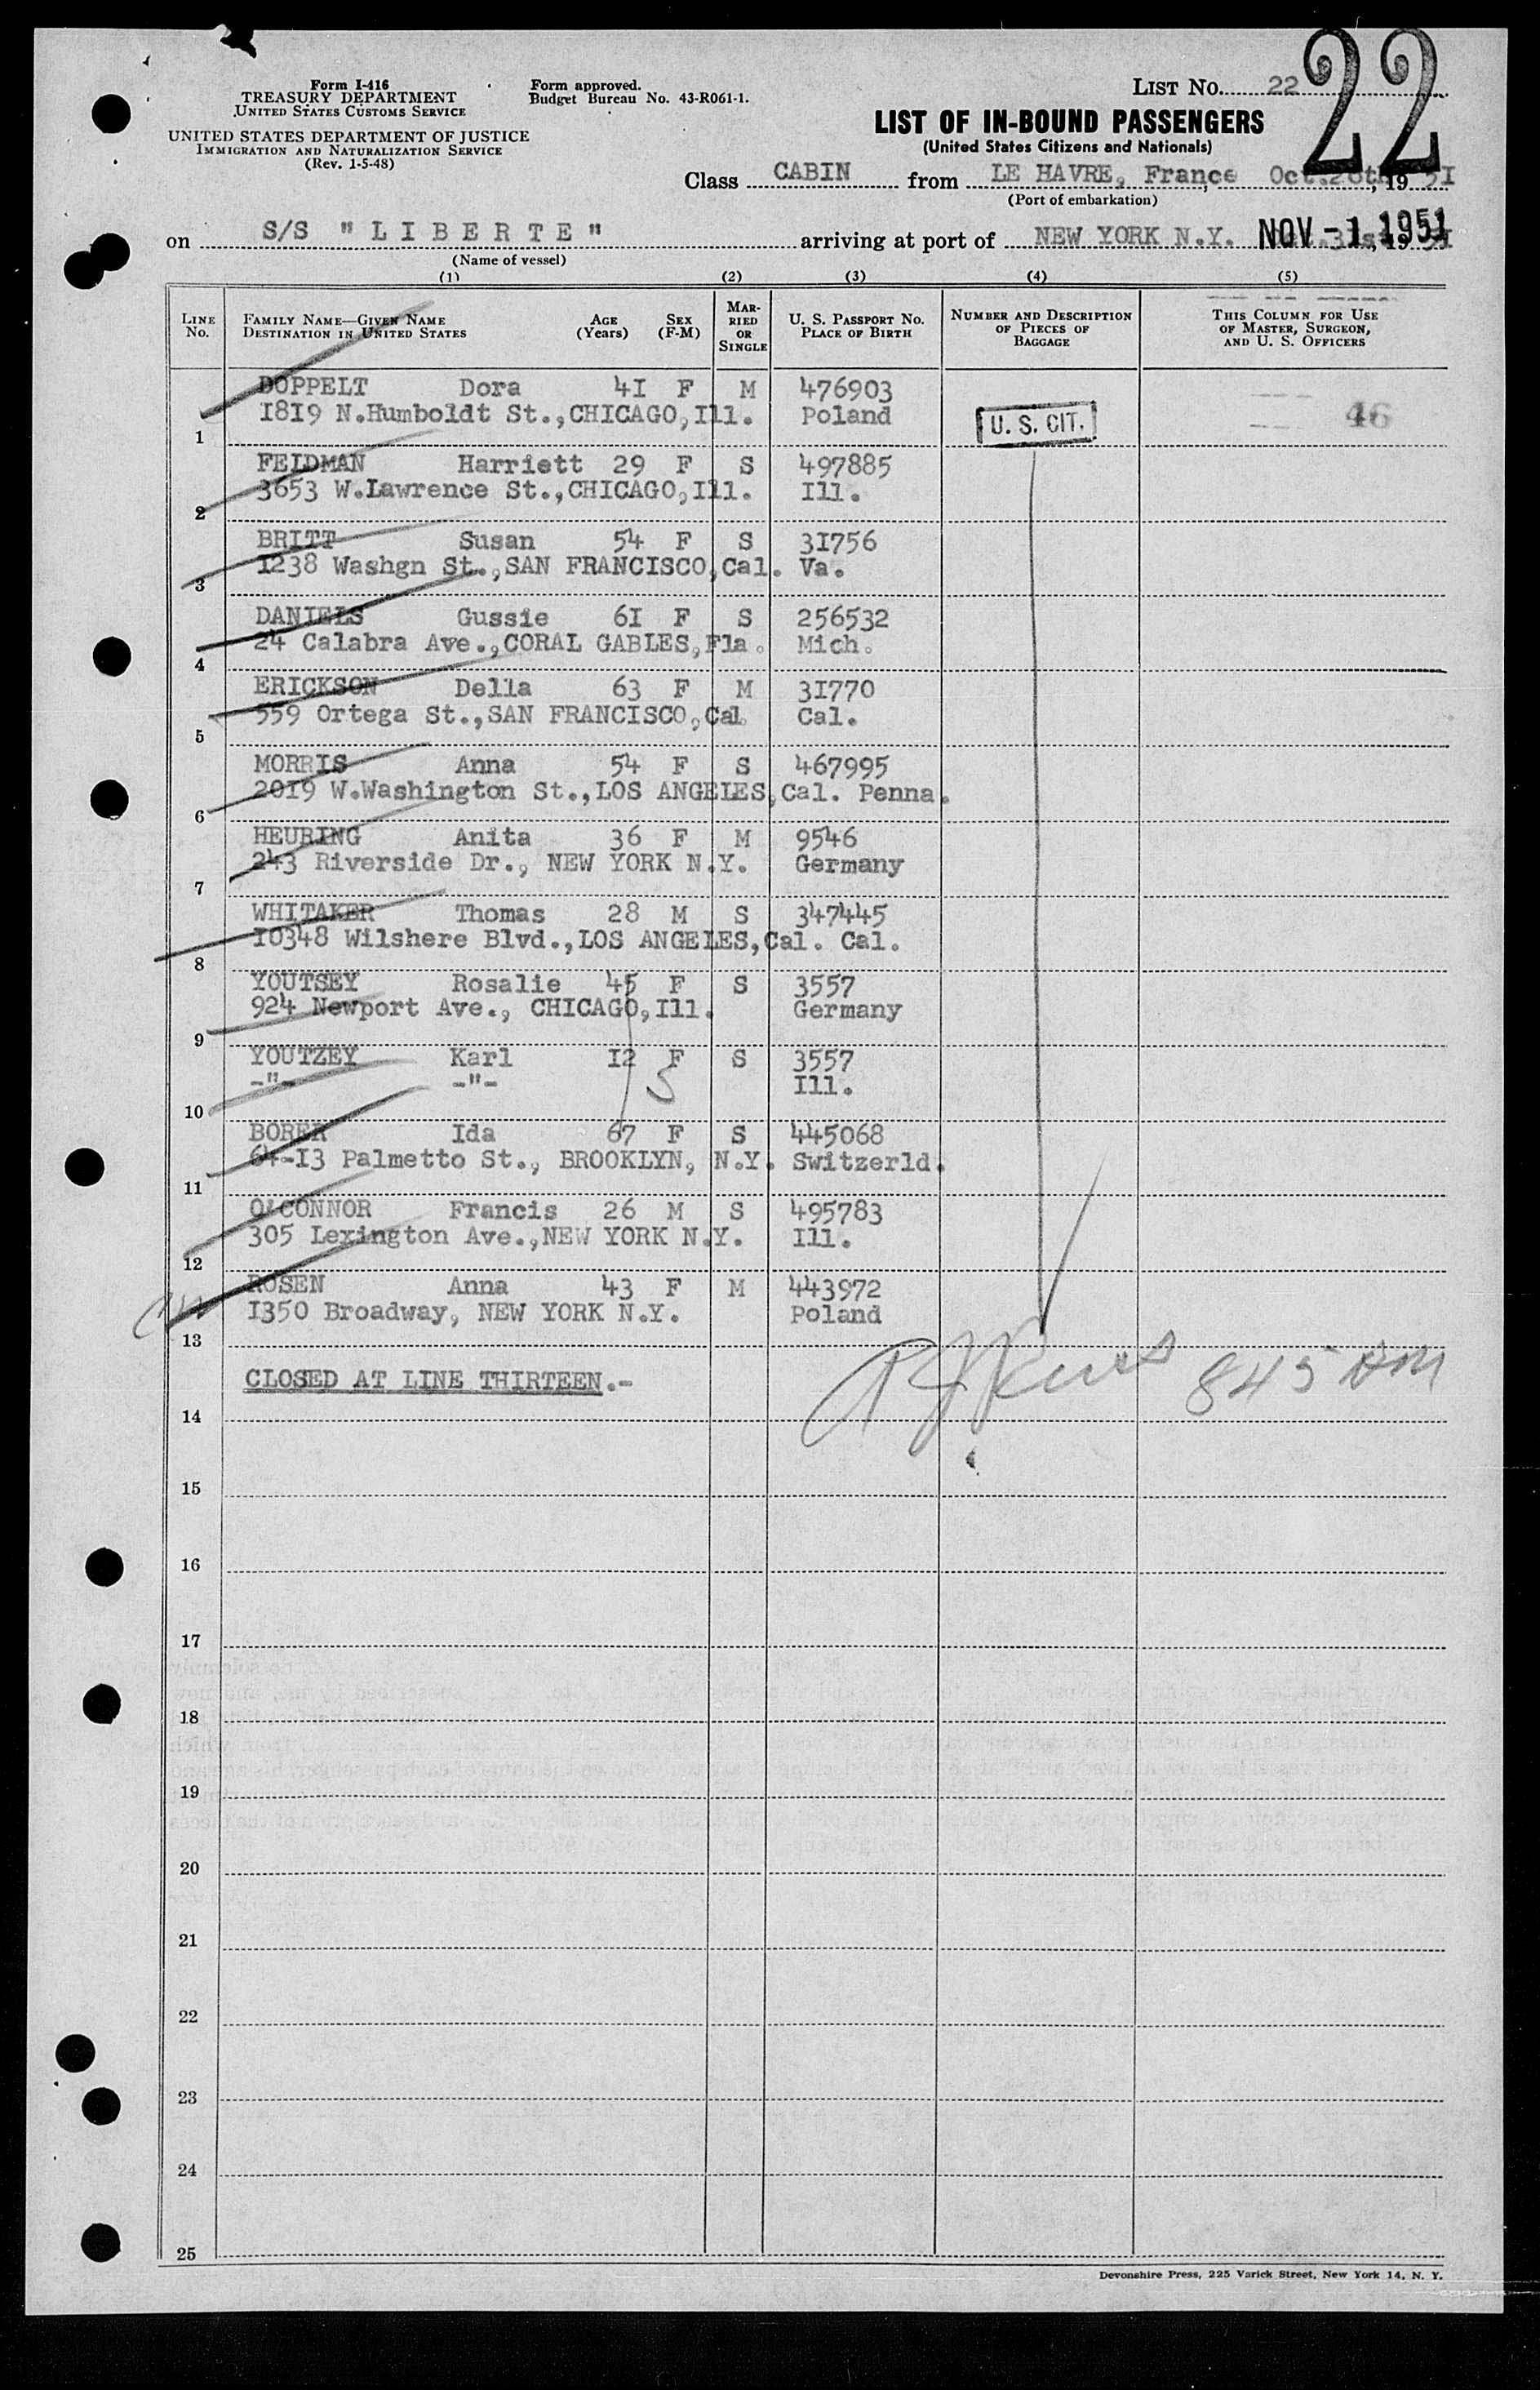 22
Form I-416
TREASURY DEPARTMENT
UNITED STATES CUSTOMS SERVICE
UNITED STATES DEPARTMENT OF JUSTICE
IMMIGRATION AND NATURALIZATION SERVICE
(Rev. 1-5-48)
Form approved.
Budget Bureau No. 43-R061-1.
LIST NO. 22
LIST OF IN-BOUND PASSENGERS
(United States Citizens and Nationals)
Class CABIN from LE HAVRE, France, Oct. , 19 51
(Port of embarkation)
on S/S "LIBERTE" arriving at port of NEW YORK N.Y. NOV - 1 1951
(Name of vessel)
(1) (2) (3) (4) (5)
LINE No. FAMILY NAME—GIVEN NAME DESTINATION IN UNITED STATES AGE (Years) SEX (F-M) MARRIED OR SINGLE U. S. PASSPORT NO. PLACE OF BIRTH NUMBER AND DESCRIPTION OF PIECES OF BAGGAGE THIS COLUMN FOR USE OF MASTER, SURGEON, AND U. S. OFFICERS
DOPPELT Dora 41 F M 476903
1 1819 N.Humboldt St.,CHICAGO,Ill. Poland U. S. CIT. 46
FEIDMAN Harriett 29 F S 497885
2 3653 W.Lawrence St.,CHICAGO,Ill. Ill.
BRITT Susan 54 F S 31756
3 1238 Washgn St.,SAN FRANCISCO,Cal. Va.
DANIELS Gussie 61 F S 256532
4 24 Calabra Ave.,CORAL GABLES,Fla. Mich.
ERICKSON Della 63 F M 31770
5 559 Ortega St.,SAN FRANCISCO,Cal. Cal.
MORRIS Anna 54 F S 467995
6 2019 W.Washington St.,LOS ANGELES,Cal. Penna.
HEURING Anita 36 F M 9546
7 243 Riverside Dr., NEW YORK N.Y. Germany
WHITAKER Thomas 28 M S 347445
8 10348 Wilshere Blvd.,LOS ANGELES,Cal. Cal.
YOUTSEY Rosalie 45 F S 3557
9 924 Newport Ave., CHICAGO,Ill. Germany
YOUTZEY Karl 12 F S 3557
10 -"- -"- Ill.
BORER Ida 67 F S 445068
11 64-13 Palmetto St., BROOKLYN, N.Y. Switzerld.
O'CONNOR Francis 26 M S 495783
12 305 Lexington Ave.,NEW YORK N.Y. Ill.
ROSEN Anna 43 F M 443972
13 1350 Broadway, NEW YORK N.Y. Poland
CLOSED AT LINE THIRTEEN.- 845 AM
14
15
16
17
18
19
20
21
22
23
24
25
Devonshire Press, 225 Varick Street, New York 14, N. Y.